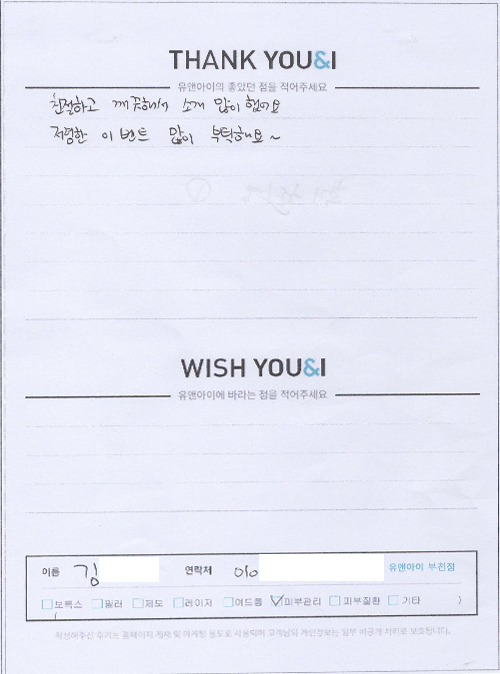 THANK YOU&I
유앤아이의 좋았던 점을 적어주세요
친절하고 깨끗해서 소개 많이 했어요
저렴한 이벤트 많이 부탁해요~
WISH YOU&I
유앤아이에 바라는 점을 적어주세요
이름 김 연락처 010 유앤아이 부천점
보톡스 필러 제모 레이저 여드름 피부관리 피부질환 기타 )
작성해주신 후기는 홈페이지 게재 및 마케팅 용도로 사용되며 고객님의 개인정보는 일부 비공개 처리로 보호됩니다.